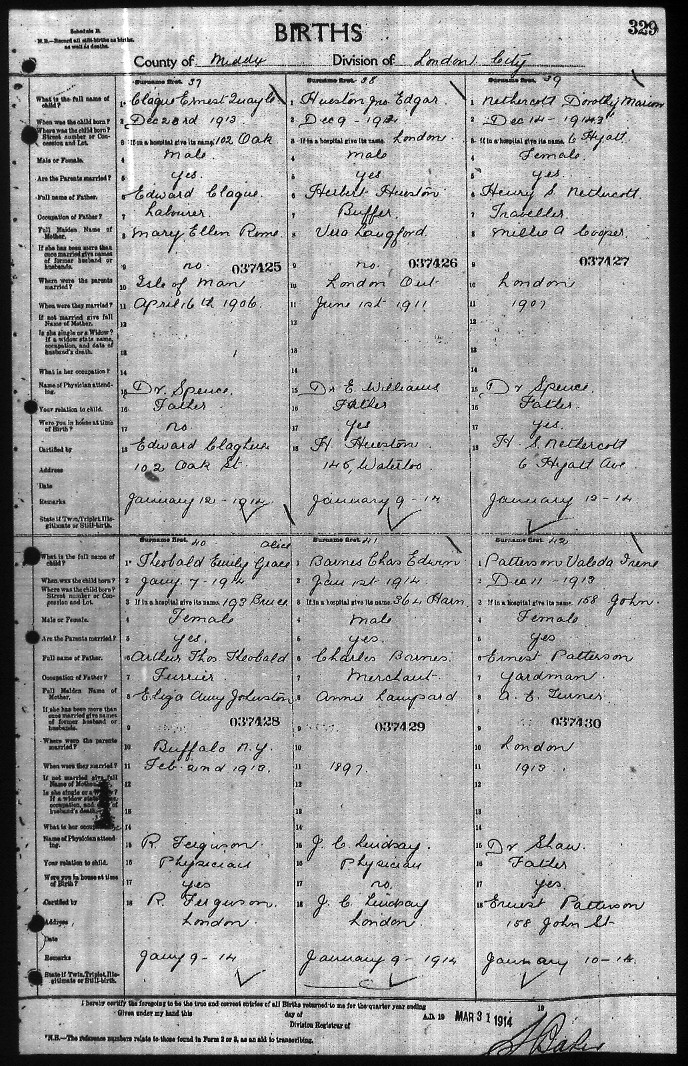 Schedule B.
N.B.—Record all still-births as births, as well as deaths.
BIRTHS
329
County of Middx Division of London City
Surname first. 37
Surname first. 38
Surname first. 39
What is the full name of child?
1 Clague Ernest Quayle
1 Hueston Jno Edgar
1 Nethercott Dorothy Marion
When was the child born?
2 Dec 23rd 1913
2 Dec 9 - 1913
2 Dec 14 - 1913
Where was the child born? Street number or Concession and Lot.
3 If in a hospital give its name. 102 Oak
3 If in a hospital give its name. London
3 If in a hospital give its name. 6 Hyatt
Male or Female.
4 Male
4 Male
4 Female
Are the Parents married?
5 yes.
5 yes
5 yes.
Full name of Father.
6 Edward Clague.
6 Herbert Hueston
6 Henry S Nethercott
Occupation of Father?
7 Labourer
7 Buffer
7 Traveller
Full Maiden Name of Mother.
8 Mary Ellen Rome.
8 Vera Langford.
8 Millie A Cooper.
If she has been more than once married give names of former husband or husbands.
9 no. 037425
9 no. 037426
9 037427
Where were the parents married?
10 Isle of Man
10 London Ont
10 London
When were they married?
11 April 16th 1906
11 June 1st 1911
11 1907
If not married give full Name of Mother.
12
Is she single or a Widow? If a widow state name, occupation, and date of husband's death.
13
What is her occupation?
14
Name of Physician attending.
15 Dr. Spence.
15 Dr E. Williams
15 Dr Spence.
Your relation to child.
16 Father
16 Father
16 Father.
Were you in house at time of Birth?
17 no
17 yes
17 yes.
Certified by
18 Edward Claghue
18 H. Hueston
18 H. S. Nethercott
Address
102 Oak St
145, Waterloo.
6 Hyatt Ave
Date
Remarks
January 12 - 1914
January 9 - 14
January 12 - 14
State if Twin, Triplet, Illegitimate or Still-birth.
Surname first. 40
Surname first. 41
Surname first. 42
What is the full name of child?
Alice
1 Theobald Emily Grace
1 Barnes Chas Edwin
1 Patterson Valoda Irene
When was the child born?
2 Jany 7 - 1914
2 Jan 1st 1914
2 Dec 11 - 1913
Where was the child born? Street number or Concession and Lot.
3 If in a hospital give its name. 193 Bruce
3 If in a hospital give its name. 364 Ham
3 If in a hospital give its name. 158 John.
Male or Female.
4 Female
4 Male
4 Female
Are the Parents married?
5 yes.
5 yes.
5 yes
Full name of Father.
6 Arthur Thos Theobald
6 Charles Barnes
6 Ernest Patterson
Occupation of Father?
7 Furrier.
7 Merchant
7 yardman
Full Maiden Name of Mother.
8 Eliza Amy Johnston
8 Annie Lampard
8 A. E. Turner
If she has been more than once married give names of former husband or husbands.
9 037428
9 037429
9 037430
Where were the parents married?
10 Buffalo N.Y.
10
10 London
When were they married?
11 Feb 2nd 1913.
11 1897
11 1913
If not married give full Name of Mother.
12
Is she single or a Widow? If a widow state name, occupation, and date of husband's death.
13
What is her occupation?
14
Name of Physician attending.
15 R. Ferguson
15 J. C. Lindsay.
15 Dr Shaw.
Your relation to child.
16 Physician
16 Physician
16 Father
Were you in house at time of Birth?
17 yes
17 no.
17 yes.
Certified by
18 R. Ferguson.
18 J. C. Lindsay
18 Ernest Patterson
Address
London
London.
158 John St
Date
Remarks
Jany 9 - 14
January 9 - 1914
January 10 - 14
State if Twin, Triplet, Illegitimate or Still-birth.
I hereby certify the foregoing to be the true and correct entries of all Births returned to me for the quarter year ending 19
Given under my hand this day of A.D. 19 MAR 31 1914
Division Registrar of
*N.B.—The reference numbers relate to those found in Form 2 or 3, as an aid to transcribing.